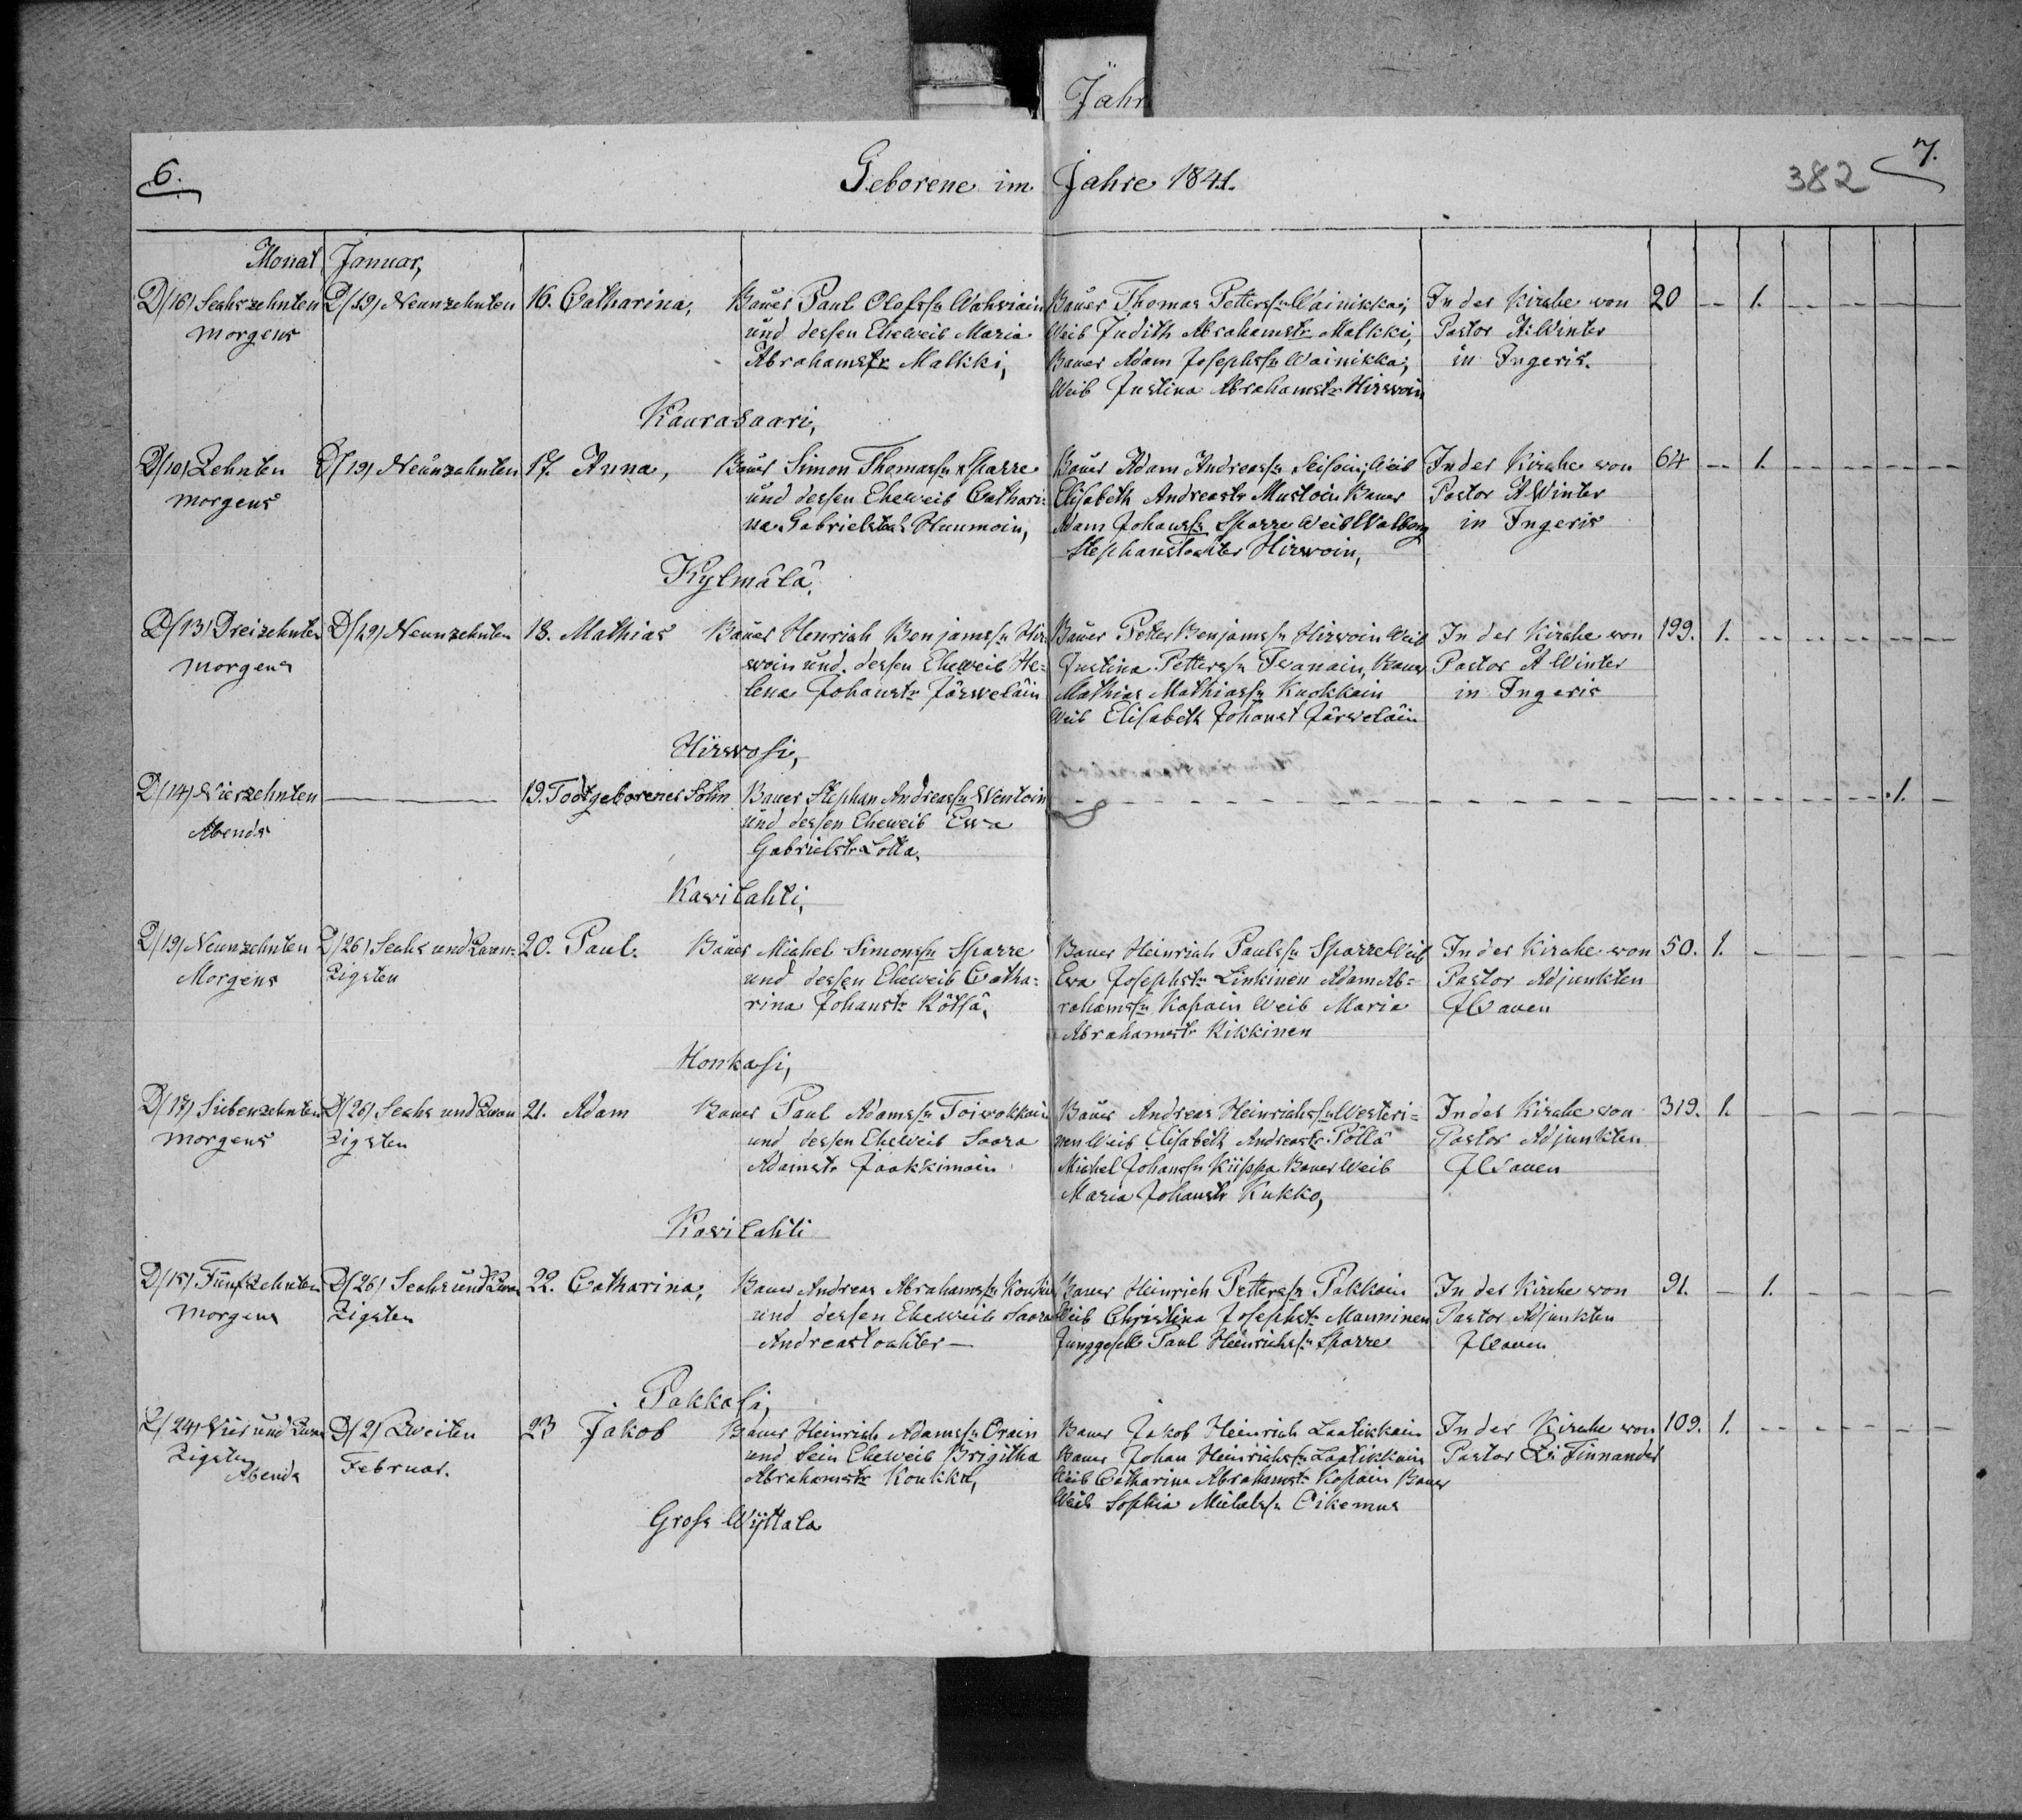 Jahr
6.
Geborene im Jahre 1841.
382
7.
Monat Januar,
D/16) Sechszehnten
morgens
D/19) Neunzehnten
16. Catharina,
Bauer Paul Olofssn Wahwiain
und dessen Eheweib Maria
Abrahamstr Malkki,
Bauer Thomas Petterssn Wainikkai,
Weib Judith Abrahamstr Malkki,
Bauer Adam Josephssn Wainikkai,
Weib Justina Abrahamstr Hirwoin
In der Kirche von
Pastor A. Winter
in Ingeris.
20 — 1. — — — —
Kaurasaari,
D/10) Zehnten
morgens
D/19) Neunzehnten
17. Anna,
Bauer Simon Thomassn Sparre
und dessen Eheweib Cathari-
na Gabrielstochter Huumoin,
Bauer Adam Andreassn Seisoin, Weib
Elisabeth Andreastr Mustoin Bauer
Adam Johanssn Sparre Weib Walborg
Stephanstochter Hirwoin,
In der Kirche von
Pastor A Winter
in Ingeris
64 — 1. — — — —
Kylmälä,
D/13) Dreizehnten
morgens
D/19) Neunzehnten
18. Mathias
Bauer Henrich Benjamssn Hir-
woin und dessen Eheweib He-
lena Johanstr Järweläin
Bauer Petter Benjamssn Hirwoin Weib
Justina Petterssn Iwanain, Bauer
Mathias Mathiassn Kuokkain
Weib Elisabeth Johanst Järweläin
In der Kirche von
Pastor A Winter
in Ingeris
199. 1. — — — — —
Hirwosi,
D/14) Vierzehnten
Abends
19. Todtgeborener Sohn
Bauer Stephan Andreassn Wentoin
und dessen Eheweib Ewa
Gabrielstr Lotta,
— — — — — 1. —
Kawilahti,
D/19) Neunzehnten
Morgens
D/26) Sechs und Zwan-
zigsten
20. Paul.
Bauer Michel Simonssn Sparre
und dessen Eheweib Catha-
rina Johanstr Kötsä,
Bauer Heinrich Paulssn Sparre Weib
Ewa Josephstr Linkinen Adam Ab-
rahamssn Kapain Weib Maria
Abrahamstr Kikkinen
In der Kirche von
Pastor Adjunkten
50. 1. — — — — —
Honkasi,
D/17) Siebenzehnten
morgens
D/26) Sechs und Zwan
zigsten
21. Adam
Bauer Paul Adamssn Toiwokkain
und dessen Eheweib Saara
Adamstr Jaakkimain
Bauer Andreas Heinrichssn Westeri-
nen Weib Elisabeth Andreastr Pöllä
Michel Johanssn Kiippa Bauer Weib
Maria Johanstr Kukko,
In der Kirche von
Pastor Adjunkten
319. 1. — — — — —
Kawilahti
D/15) Fünfzehnten
morgens
D/26) Sechs und Zwan
zigsten
22. Catharina,
Bauer Andreas Abrahamssn
und dessen Eheweib Saara
Andreastochter —
Bauer Heinrich Petterssn Pakkain
Weib Christina Josephstr Manninen
Junggeselle Paul Heinrichssn Sparre
In der Kirche von
Pastor Adjunkten
91. — 1. — — — —
Pakkasi,
D/24) Vier und Zwan
zigsten
Abends
D/2) Zweiten
Februar.
23 Jakob
Bauer Heinrich Adamssn Orain
und Sein Eheweib Brigitha
Abrahamstr Koukka,
Bauer Jakob Heinrich Laatikkain
Bauer Johan Heinrichssn Laatikkain
Weib Catharina Abrahamstr Kopain Bauer
Weib Sophia Michelssn Cikemus
In der Kirche von
Pastor Finnander
109. 1. — — — — —
Gross Wyttala